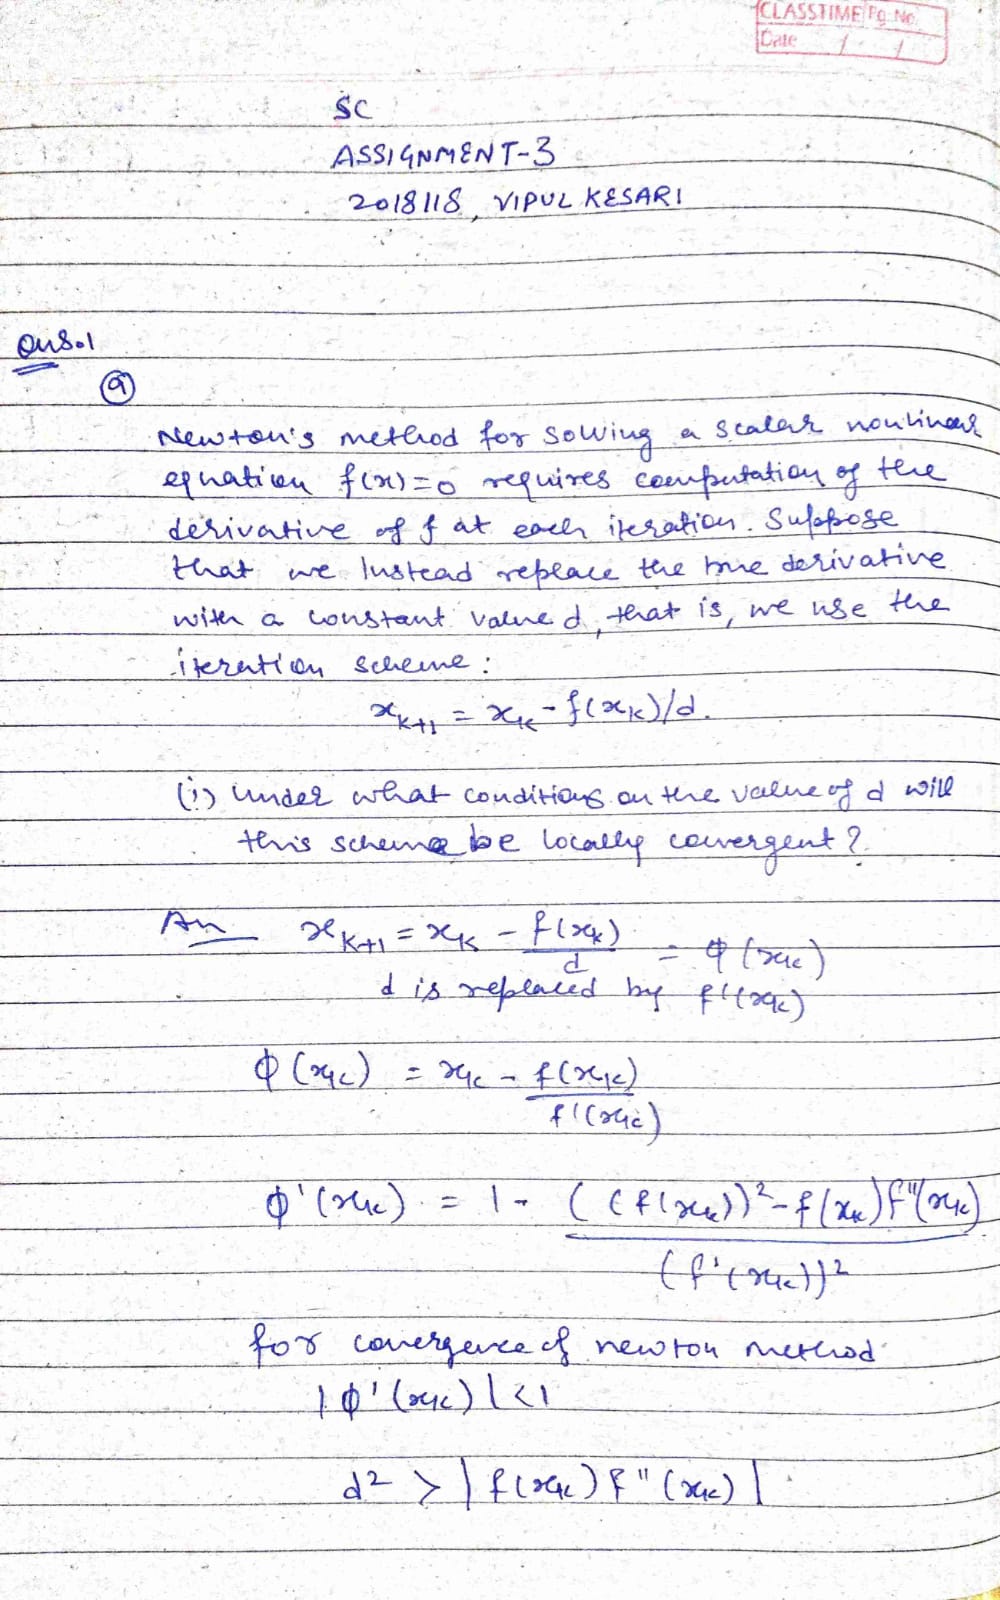 CLASSTIME Pg. No.
Date / /
SC
ASSIGNMENT-3
2018118, VIPUL KESARI
Ques.1
(a)
Newton's method for solving a scalar nonlinear
equation f(x)=0 requires computation of the
derivative of f at each iteration. Suppose
that we Instead replace the true derivative
with a constant value d, that is, we use the
iteration scheme:
x_{k+1} = x_k - f(x_k)/d.
(i) Under what conditions on the value of d will
this scheme be locally convergent?
An x_{k+1} = x_k - f(x_k)/d = ϕ(x_k)
d is replaced by f'(x_k)
ϕ(x_k) = x_k - f(x_k)/f'(x_k)
ϕ'(x_k) = 1 - ((f(x_k))² - f(x_k)f''(x_k)/(f'(x_k))²
for convergence of newton method
|ϕ'(x_k)|<1
d² > |f(x_k)f''(x_k)|